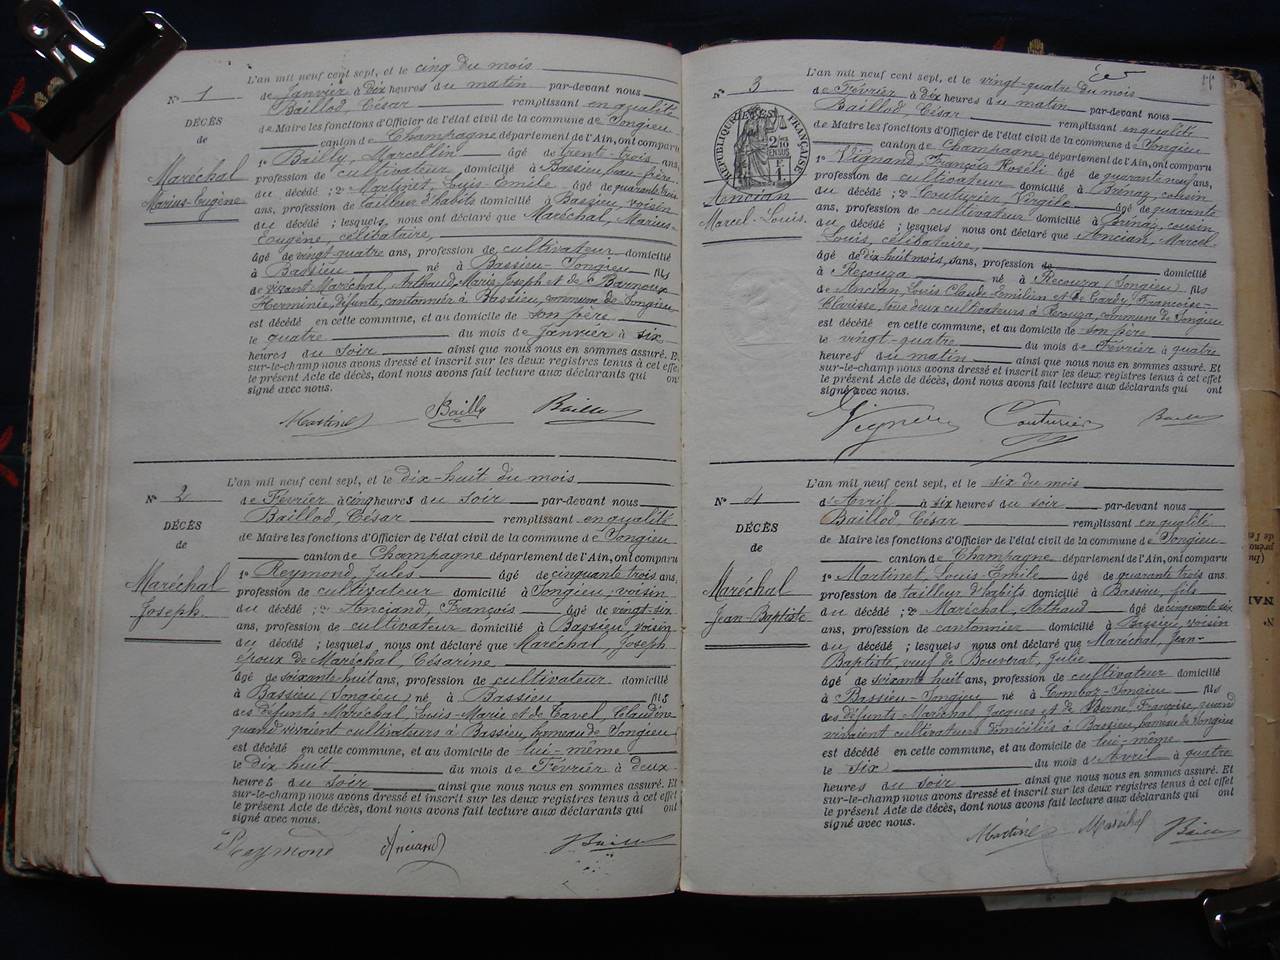 L'an mil neuf cent sept, et le cinq du mois
N° 1
de Janvier à Dix heures du matin par-devant nous
Baillod, César remplissant en qualité
DÉCÈS
de Maire les fonctions d'Officier de l'état civil de la commune de Songieu
de
canton de Champagne département de l'Ain, ont comparu
Maréchal
Marius-Eugène
1° Bailly, Marcellin âgé de trente-trois ans,
profession de cultivateur domicilié à Bassieu, beau-frère
du décédé ; 2° Martinet, Louis-Emile âgé de quarante trois
ans, profession de tailleur d'habits domicilié à Bassieu, voisin
du décédé ; lesquels, nous ont déclaré que Maréchal, Marius-
Eugène, célibataire,
âgé de vingt-quatre ans, profession de cultivateur domicilié
à Bassieu né à Bassieu-Songieu fils
de vivant Maréchal, Arthaud, Marie Joseph et de Barnoux
Herminie, défunte, cantonnier à Bassieu, commune de Songieu
est décédé en cette commune, et au domicile de son père
le quatre du mois de Janvier à six
heures du soir ainsi que nous nous en sommes assuré. Et
sur-le-champ nous avons dressé et inscrit sur les deux registres tenus à cet effet
le présent Acte de décès, dont nous avons fait lecture aux déclarants qui ont
signé avec nous.
Martinet Bailly Baillod
L'an mil neuf cent sept, et le dix-huit du mois
N° 2
de Février à cinq heures du soir par-devant nous
Baillod, César remplissant en qualité
DÉCÈS
de Maire les fonctions d'Officier de l'état civil de la commune de Songieu
de
canton de Champagne département de l'Ain, ont comparu
Maréchal
Joseph
1° Reymond, Jules âgé de cinquante trois ans,
profession de cultivateur domicilié à Songieu, voisin
du décédé ; 2° Anciand, François âgé de vingt-six
ans, profession de cultivateur domicilié à Bassieu, voisin
du décédé ; lesquels nous ont déclaré que Maréchal, Joseph
époux de Maréchal, Césarine
âgé de soixante huit ans, profession de cultivateur domicilié
à Bassieu (Songieu) né à Bassieu fils
des défunts Maréchal Louis-Marie et de Tavel Claudine
quand vivaient cultivateurs à Bassieu, hameau de Songieu
est décédé en cette commune, et au domicile de lui-même
le dix huit du mois de Février à deux
heures du soir ainsi que nous nous en sommes assuré. Et
sur-le-champ nous avons dressé et inscrit sur les deux registres tenus à cet effet
le présent Acte de décès, dont nous avons fait lecture aux déclarants qui ont
signé avec nous.
Reymond Anciand Baillod
L'an mil neuf cent sept, et le vingt-quatre du mois
N° 3
de Février à Dix heures du matin par-devant nous
Baillod, César remplissant en qualité
RÉPUBLIQUE FRANÇAISE
de Maire les fonctions d'Officier de l'état civil de la commune de Songieu
canton de Champagne département de l'Ain, ont comparu
Ancian
Marcel-Louis
1° Vignand, François Roseli âgé de quarante neuf ans,
profession de cultivateur domicilié à Brénaz, cousin
du décédé ; 2° Couturier, Virgile âgé de quarante
ans, profession de cultivateur domicilié à Brénaz, cousin
du décédé ; lesquels nous ont déclaré que Ancian, Marcel
Louis, célibataire,
âgé de dix-huit mois, ans, profession de domicilié
à Recouza né à Recouza (Songieu) fils
de Ancian, Louis Claude Emilien et de Gardy, Françoise-
Clarisse, tous deux cultivateurs à Recouza, commune de Songieu
est décédé en cette commune, et au domicile de son père
le vingt-quatre du mois de Février à quatre
heures du matin ainsi que nous nous en sommes assuré. Et
sur-le-champ nous avons dressé et inscrit sur les deux registres tenus à cet effet
le présent Acte de décès, dont nous avons fait lecture aux déclarants qui ont
signé avec nous.
Couturier Baillod
L'an mil neuf cent sept, et le six du mois
N° 4
d'Avril à six heures du soir par-devant nous
Baillod, César remplissant en qualité
DÉCÈS
de Maire les fonctions d'Officier de l'état civil de la commune de Songieu
de
canton de Champagne département de l'Ain, ont comparu
Maréchal
Jean-Baptiste
1° Martinet, Louis Emile âgé de quarante trois ans
profession de tailleur d'habits domicilié à Bassieu, fils
du décédé ; 2° Maréchal, Arthaud âgé de cinquante six
ans, profession de cantonnier domicilié à Bassieu, voisin
du décédé ; lesquels nous ont déclaré que Maréchal, Jean-
Baptiste, veuf de Bouvrat, Julie
âgé de soixante huit ans, profession de cultivateur domicilié
à Bassieu-Songieu né à Comboz-Songieu fils
des défunts Maréchal Jacques et de Berne Françoise, quand
vivaient cultivateurs domiciliés à Bassieu, hameau de Songieu
est décédé en cette commune, et au domicile de lui-même
le six du mois d'Avril à quatre
heures du soir ainsi que nous nous en sommes assuré. Et
sur-le-champ nous avons dressé et inscrit sur les deux registres tenus à cet effet
le présent Acte de décès, dont nous avons fait lecture aux déclarants qui ont
signé avec nous.
Martinet Maréchal Baillod